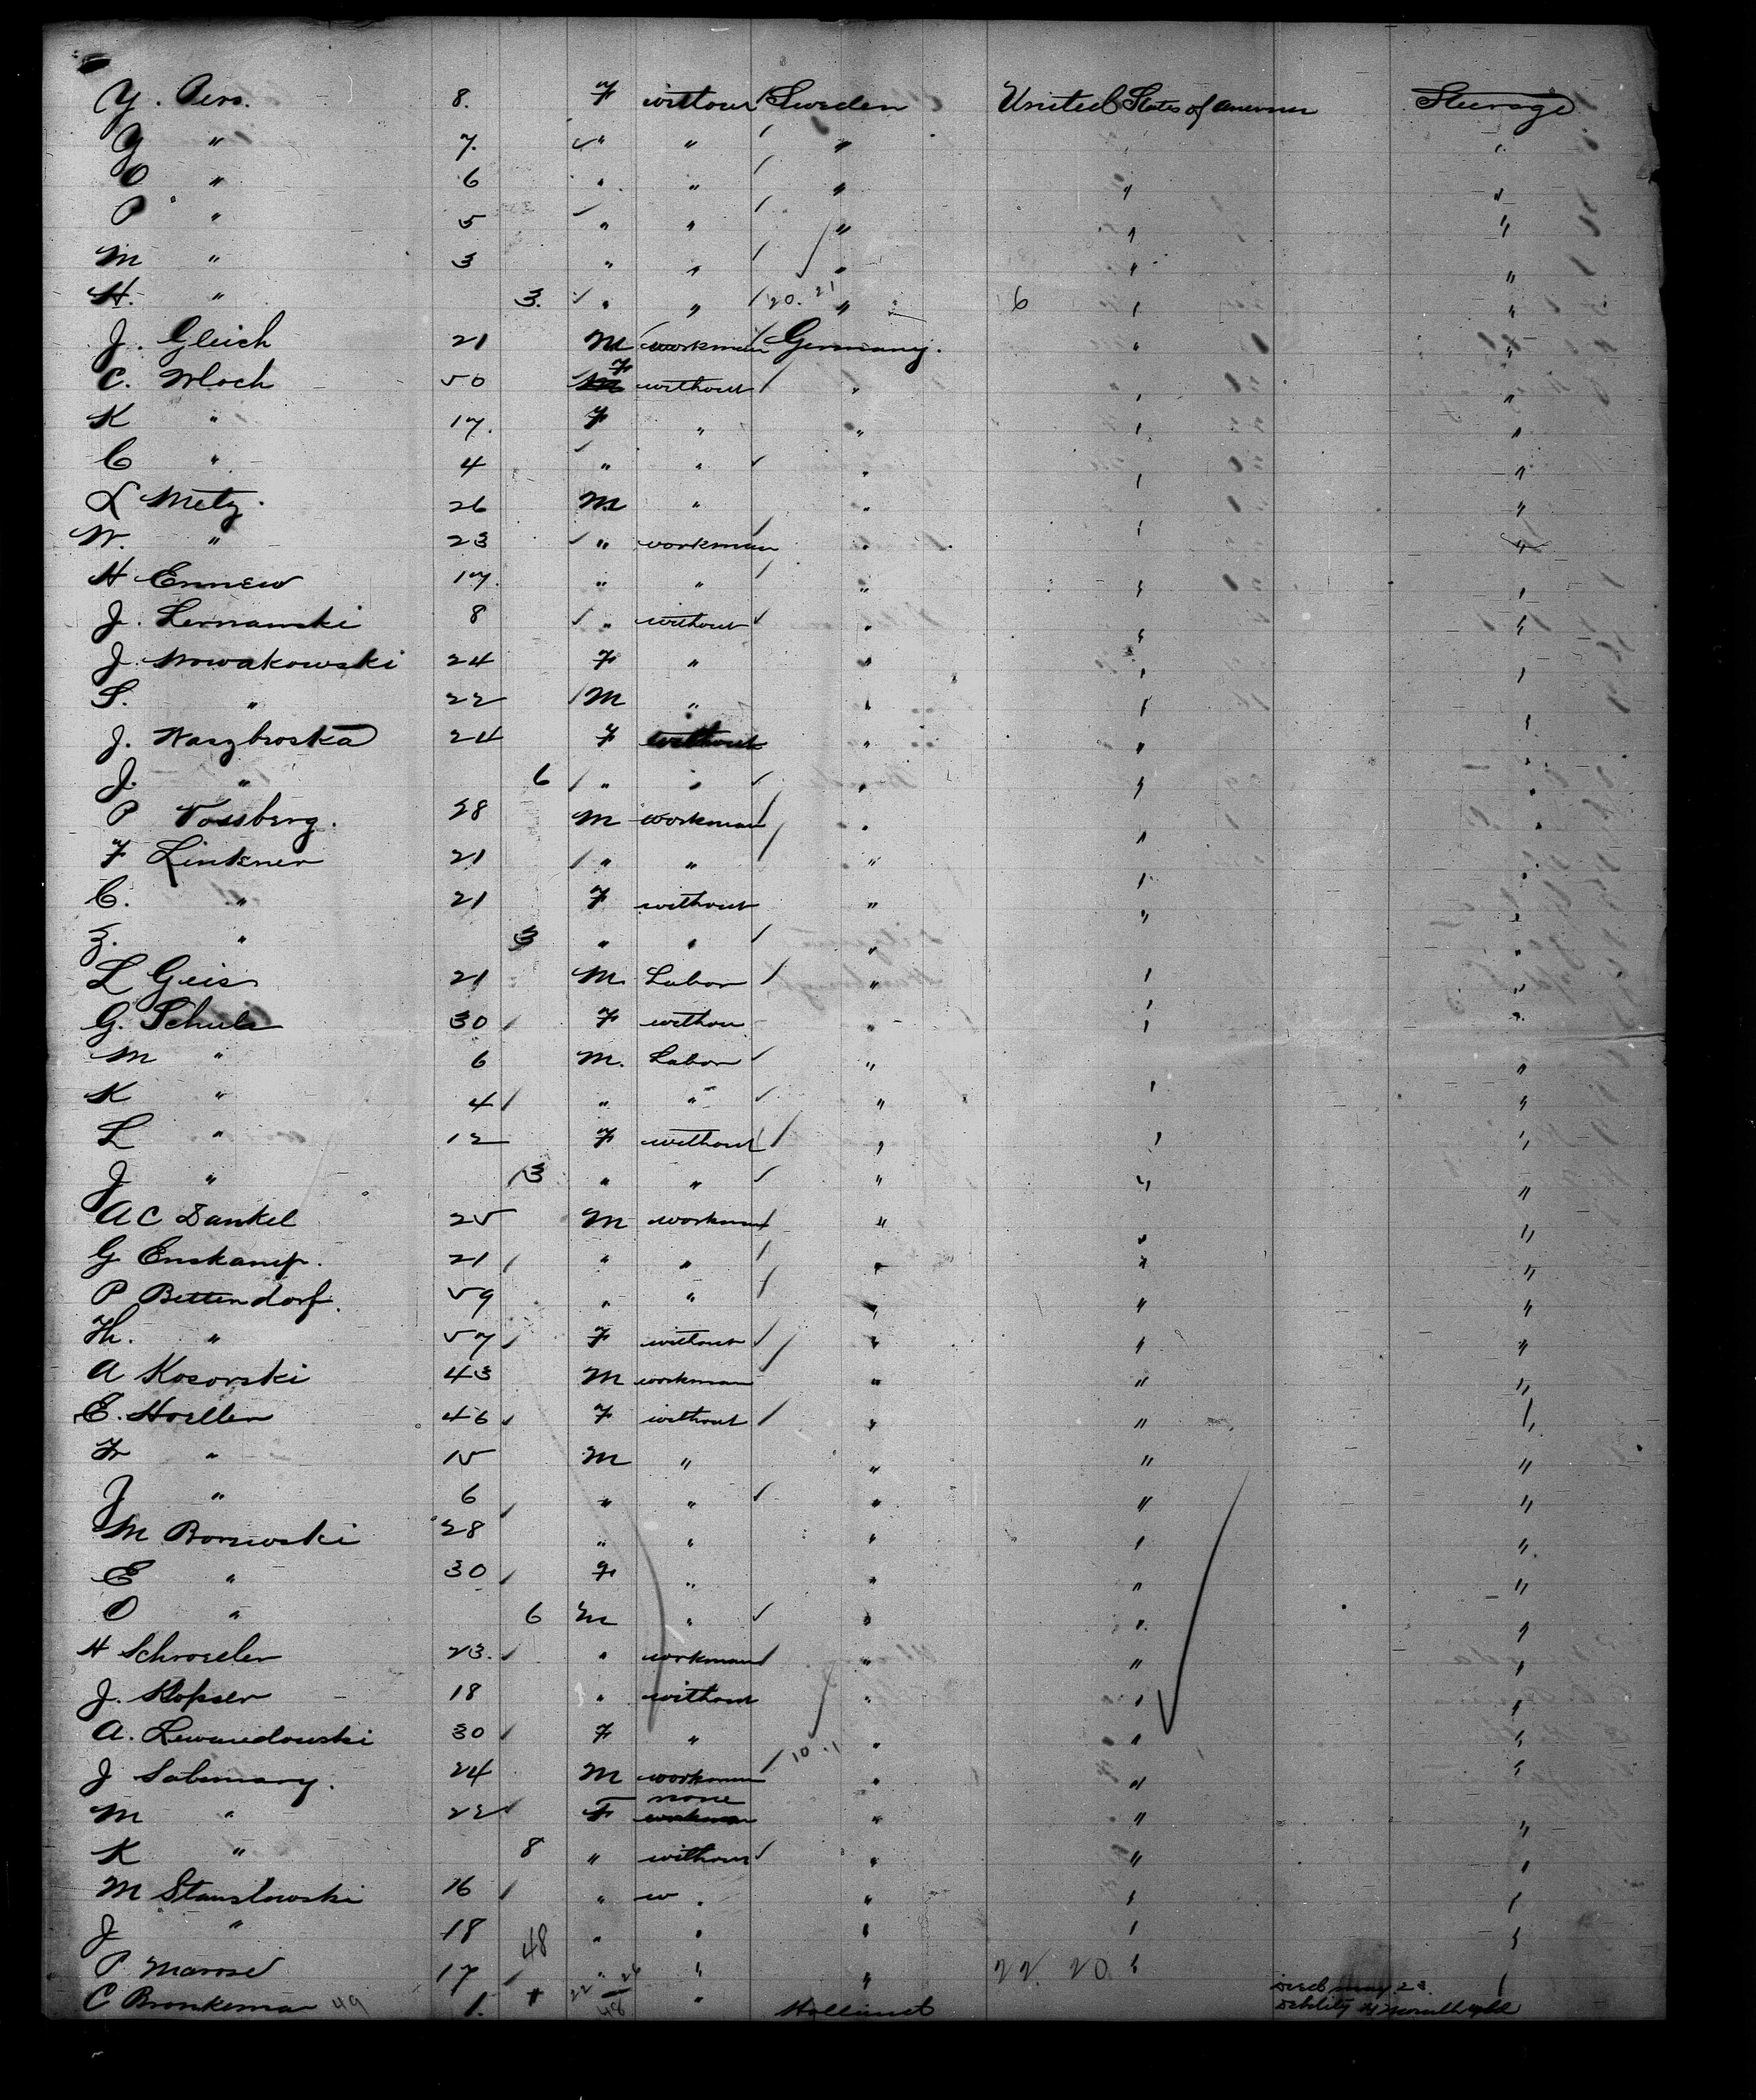 Y. Pers. 8. F without Sweden United States of America Steerage
Y " 7. " " " " "
O " 6 " " " " "
P " 5 " " " " "
M " 3 " " " " "
H. " 3. " " 20. 21 " 6 " "
J. Gleich 21 M workman Germany. " "
C. Wloch 50 F without " " "
K " 17. F " " " "
C " 4 " " " " "
L Metz. 26 M " " " "
W. " 23 " workman " "
H Ennew 17. " " " " "
J. Lernamski 8 " without " " "
J. Nowakowski 24 F " " " "
S. " 22 M " " " "
J. Waszbroska 24 F without " " "
J. " 6 " " " " "
P Vossberg. 28 M workman " " "
F Linkner 21 " " " " "
C. " 21 F without " " "
Z. " 3 " " " "
L Geis 21 M. Labor " " "
G. Schulz 30 F withou " " "
M " 6 M. Labor " "
K " 4 " " " " "
L " 12 F without " " "
J " 3 " " " " "
A C Dankel 25 M workman " " "
G Enskamp. 21 " " " " "
P Bettendorf. 59 " " " " "
Th. " 57 F without " " "
A Kosorski 43 M workman " " "
E. Hoellen 46 F without " " "
Fr " 15 M " " " "
J " 6 " " " " "
M Borowski 28 " " " " "
E " 30 F " " " "
O " 6 M " " " "
H Schroeder 23. " workman " " "
J. Klopser 18 " without " " "
A. Lewandowski 30 F " " " "
J Salomary. 24 M workman 10 11 " " "
none
M " 22 F workman " " "
K " 8 " without " " "
M Stanslowski 16 " w " " "
J " 18 " " " " "
48
P Marose 17 " " " 22. 20 " "
C Bronkeman 49 1. + 22 26 48 " Holland
Died May 23.
Debility